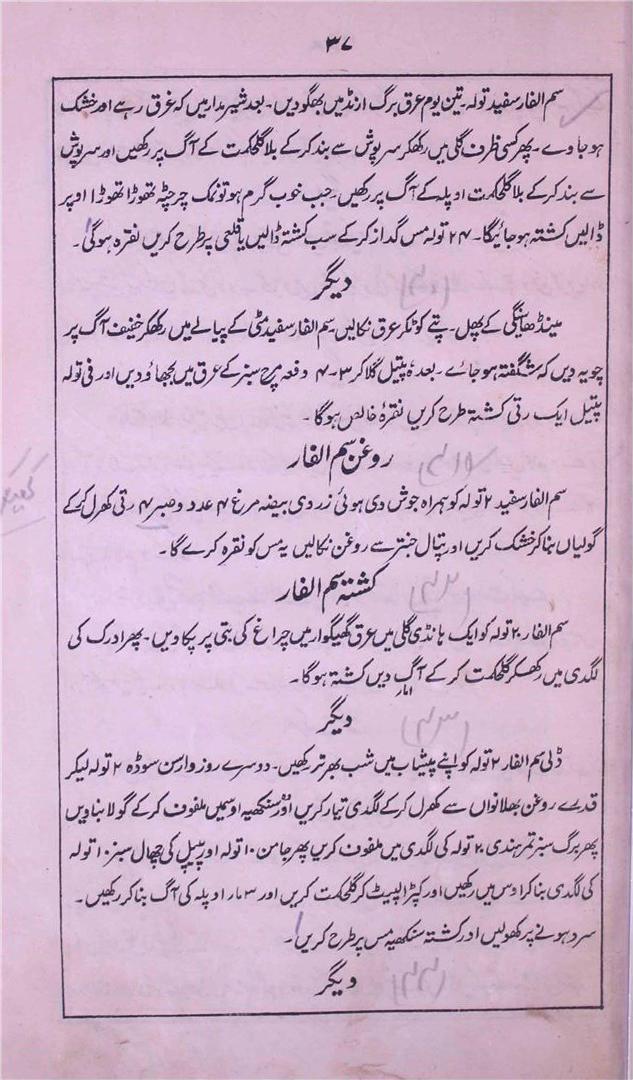 ۳۷
سم الفار سفید تولہ۔ تین یوم عرق برگ ارنڈ میں بھگو دیں۔ بعد شیر مدار میں کہ غرق رہے اور خشک
ہو جاوے۔ پھر کسی ظرف گلی میں رکھکر سرپوش سے بند کر کے بلا گلحکمت کے آگ پر رکھیں اور سرپوش
سے بند کر کے بلا گلحکمت اوپلہ کے آگ پر رکھیں۔ جب خوب گرم ہو تو نمک چرچٹہ تھوڑا تھوڑا اوپر
ڈالیں کشتہ ہو جائیگا۔ ۲۴ تولہ مس گداز کر کے سب کشتہ ڈالیں یا قلعی پر طرح کریں نقرہ ہوگی۔
دیگر
مینڈھا سنگی کے پھل۔ پتے کوٹکر عرق نکالیں۔ سم الفار سفید مٹی کے پیالے میں رکھکر خفیف آگ پر
چویہ دیں کہ شگفتہ ہو جائے۔ بعدہٗ پیتل گلا کر ۳۔۴ دفعہ مرچ سبز کے عرق میں بجھاؤ دیں اور فی تولہ
پیتل ایک رتی کشتہ طرح کریں نقرہ خالص ہوگا۔
روغن سم الفار
سم الفار سفید ۲ تولہ کو ہمراہ جوش دی ہوئی زردی بیضہ مرغ ۴ عدد و صبر ۴ رتی کھرل کر کے
گولیاں بنا کر خشک کریں اور پتال جنتر سے روغن نکالیں یہ مس کو نقرہ کرے گا۔
کشتہ سم الفار
سم الفار ۲ تولہ کو ایک ہانڈی گلی میں عرق گھیگوار میں چراغ کی بتی پر پکا دیں۔ پھر ادرک کی
لگدی میں رکھکر گلحکمت کر کے آگ دیں کشتہ ہوگا۔
دیگر
ڈلی سم الفار ۲ تولہ کو اپنے پیشاب میں شب بھر تر رکھیں۔ دوسرے روز وارسن سوڈہ ۲ تولہ لیکر
قدرے روغن بھلانواں سے کھرل کر کے لگدی تیار کریں اور سنکھیہ اوسمیں ملفوف کر کے گولا بنا دیں
پھر برگ سبز تمر ہندی ۲ تولہ کی لگدی میں ملفوف کریں پھر جامن ۱۰ تولہ اور پیپل کی چھال سبز ۱۰ تولہ
کی لگدی بنا کر اوس میں رکھیں اور کپڑا لپیٹ کر گلحکمت کریں اور ۳ مار اوپلہ کی آگ بنا کر رکھیں۔
سرد ہونے پر کھولیں اور کشتہ سنکھیہ مس پر طرح کریں۔
دیگر